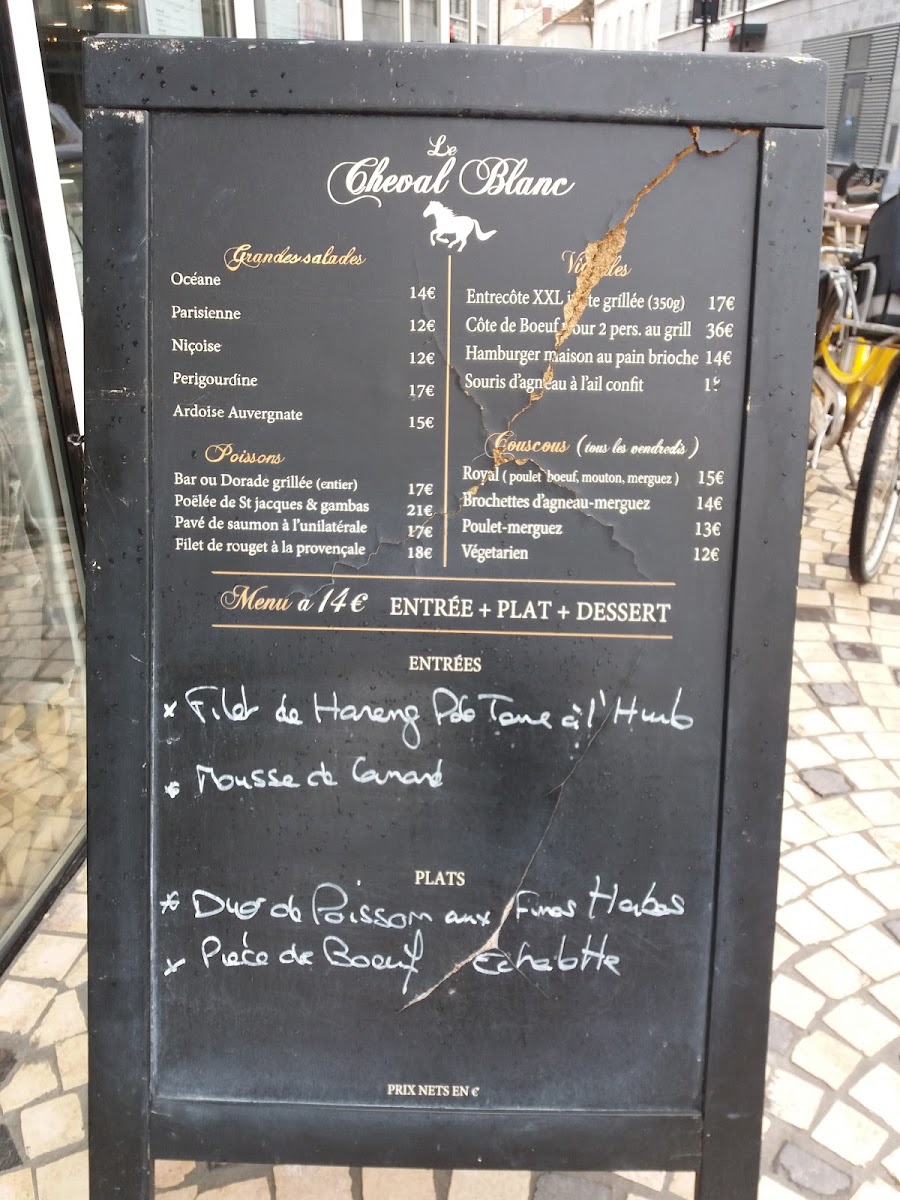 Le
Cheval Blanc
Grandes salades
Océane 14€
Parisienne 12€
Niçoise 12€
Perigourdine 17€
Ardoise Auvergnate 15€
Poissons
Bar ou Dorade grillée (entier) 17€
Poëlée de St jacques & gambas 21€
Pavé de saumon à l'unilatérale 17€
Filet de rouget à la provençale 18€
Entrecôte XXL grillée (350g) 17€
Côte de Boeuf pour 2 pers. au grill 36€
Hamburger maison au pain brioche 14€
Souris d'agneau à l'ail confit
Couscous (tous les vendredis)
Royal (poulet boeuf, mouton, merguez) 15€
Brochettes d'agneau-merguez 14€
Poulet-merguez 13€
Végetarien 12€
Menu a 14€ ENTRÉE + PLAT + DESSERT
ENTRÉES
x Filet de Hareng Pde Tome à l'Huile
x Mousse de Canard
PLATS
x Duo de Poisson aux Fines Herbes
x Pièce de Boeuf Echalotte
PRIX NETS EN €